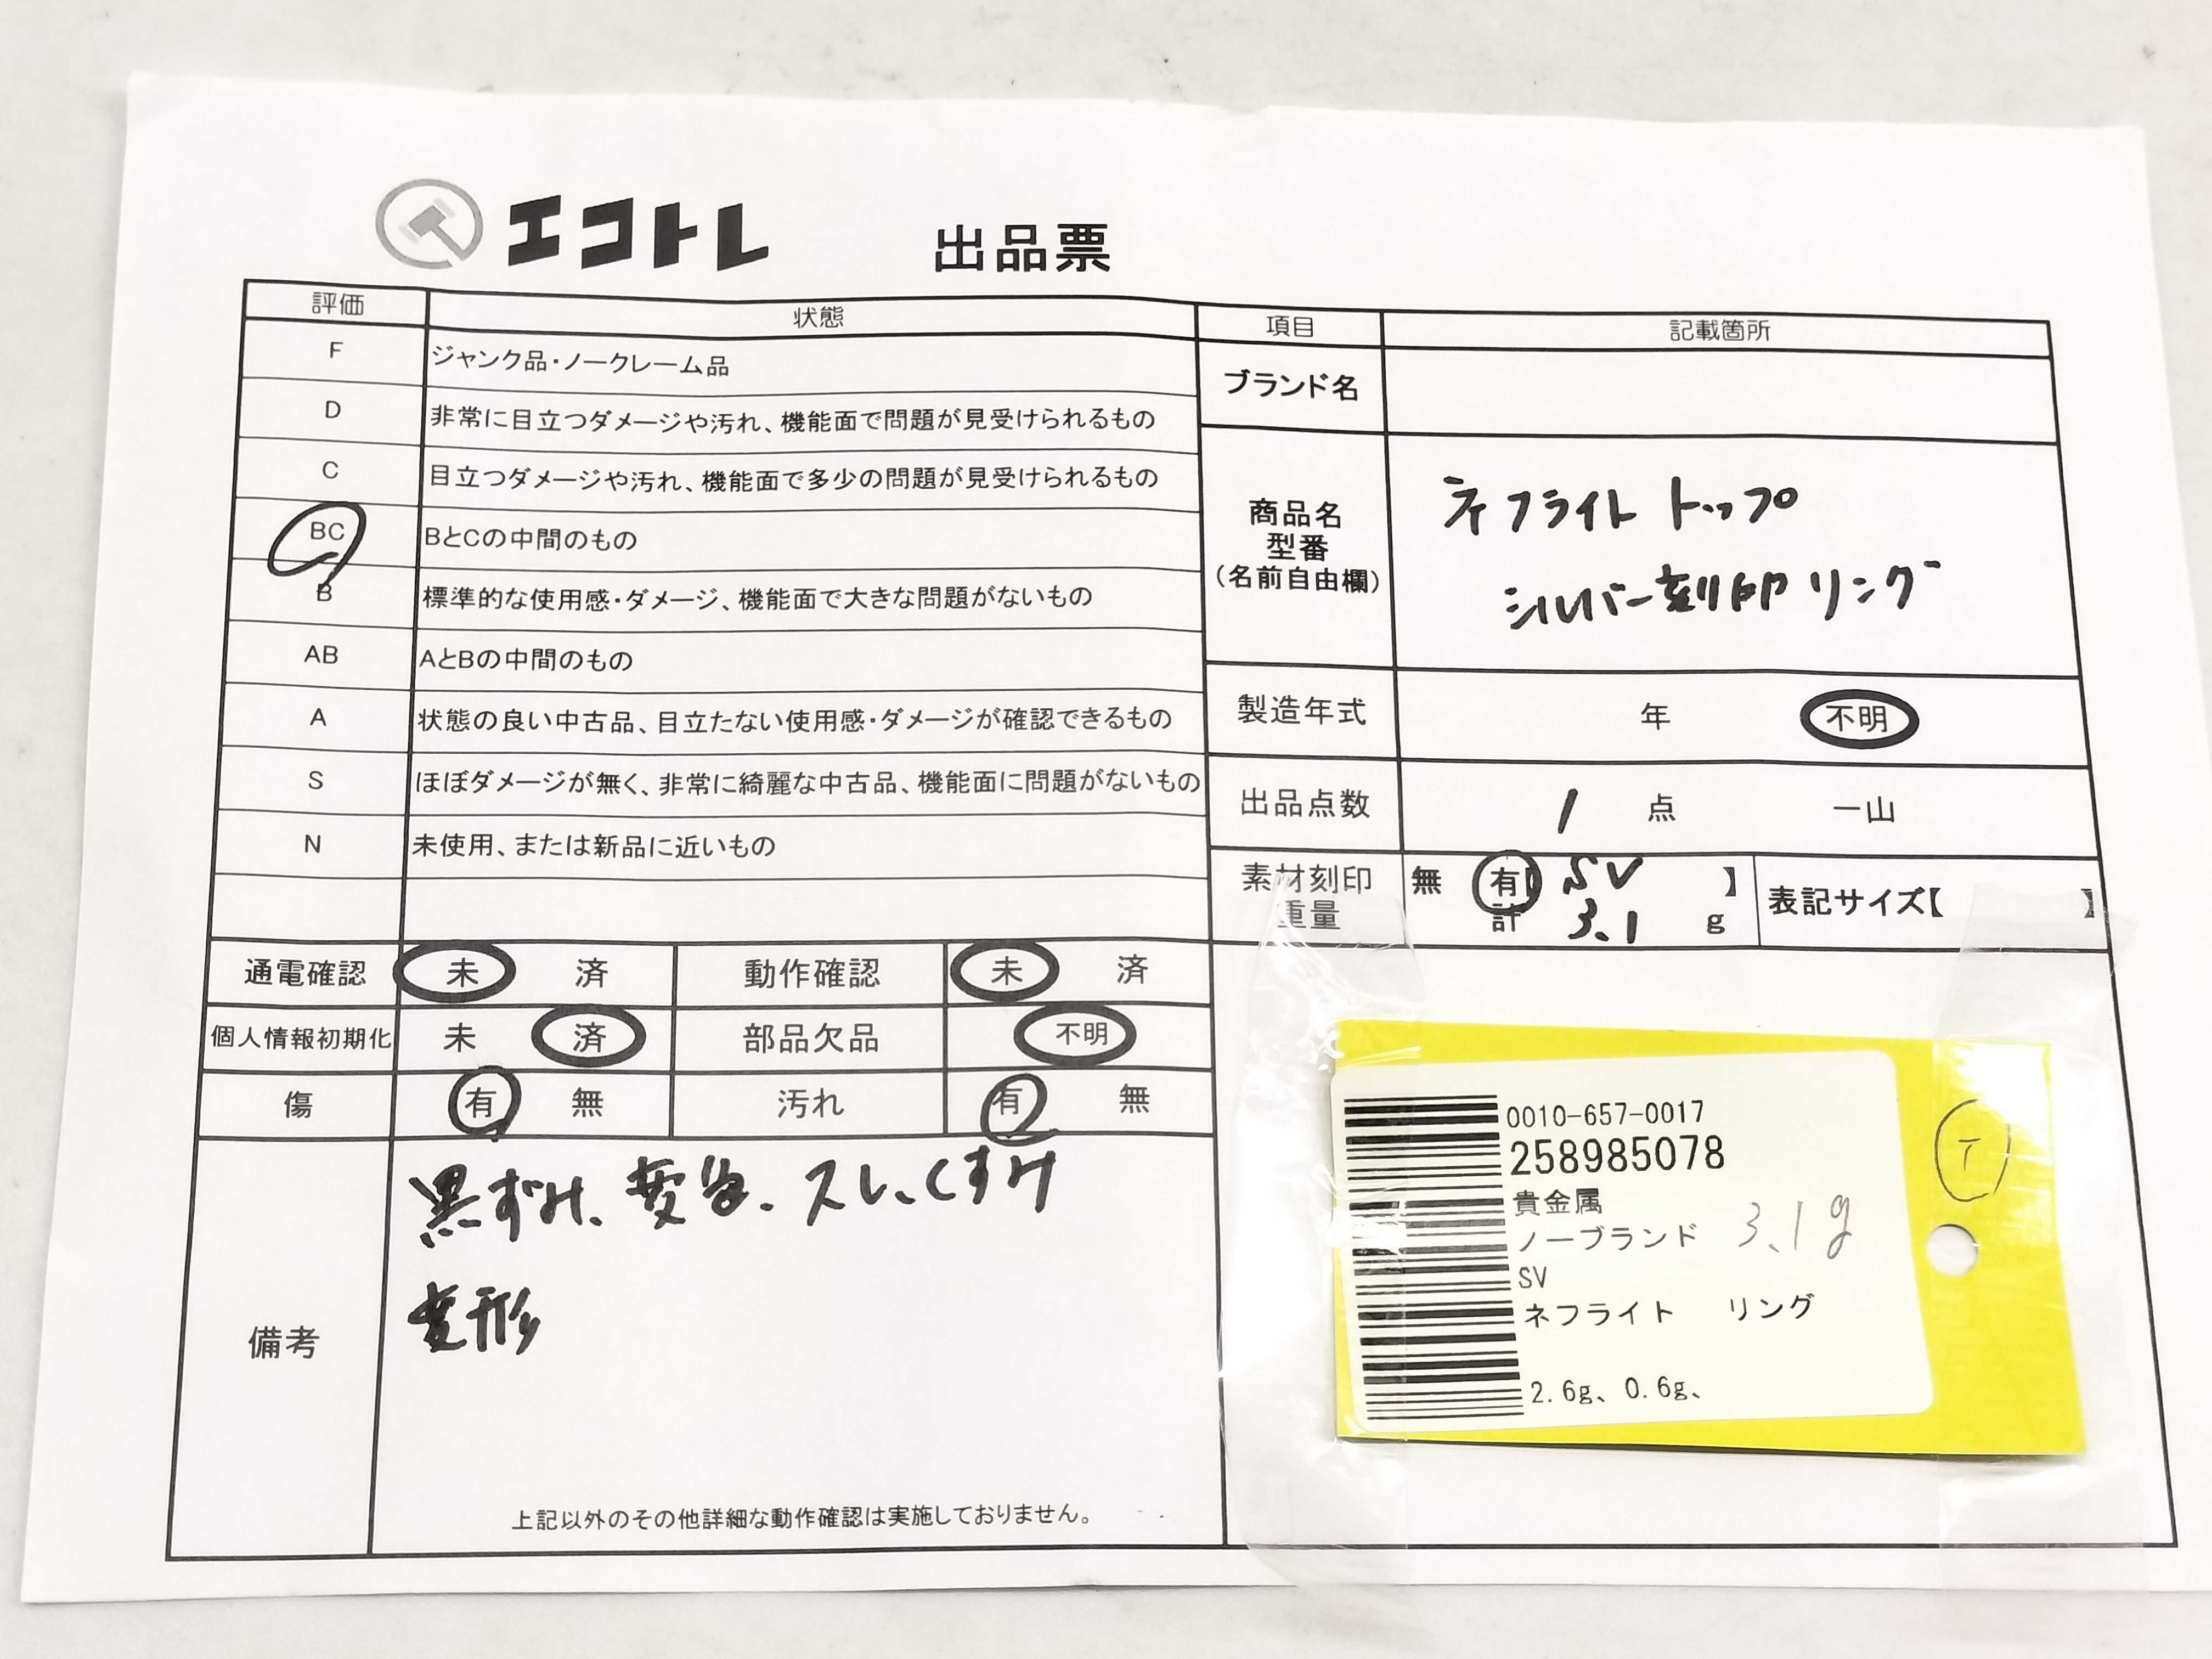 エコトレ 出品票
評価 状態
F ジャンク品・ノークレーム品
D 非常に目立つダメージや汚れ、機能面で問題が見受けられるもの
C 目立つダメージや汚れ、機能面で多少の問題が見受けられるもの
BC BとCの中間のもの
B 標準的な使用感・ダメージ、機能面で大きな問題がないもの
AB AとBの中間のもの
A 状態の良い中古品、目立たない使用感・ダメージが確認できるもの
S ほぼダメージが無く、非常に綺麗な中古品、機能面に問題がないもの
N 未使用、または新品に近いもの
通電確認 未 済 動作確認 未 済
個人情報初期化 未 済 部品欠品 不明
傷 有 無 汚れ 有 無
備考
黒ずみ、変色、スレ、くすみ
変形
上記以外のその他詳細な動作確認は実施しておりません。
項目 記載箇所
ブランド名
商品名
型番
(名前自由欄)
ネフライト トップ
シルバー刻印 リング
製造年式 年 不明
出品点数 1 点 一山
素材刻印 無 有 SV 】
重量 計 3.1 g
表記サイズ【 】
0010-657-0017
258985078
貴金属
ノーブランド 3.1g
SV
ネフライト リング
2.6g、0.6g、
T